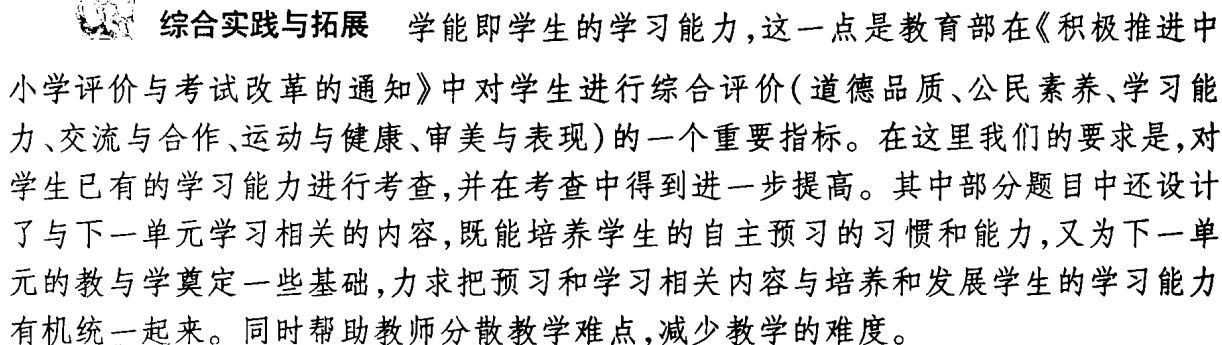 综合实践与拓展 学能即学生的学习能力,这一点是教育部在《积极推进中
小学评价与考试改革的通知》中对学生进行综合评价(道德品质、公民素养、学习能
力、交流与合作、运动与健康、审美与表现)的一个重要指标。在这里我们的要求是,对
学生已有的学习能力进行考查,并在考查中得到进一步提高。其中部分题目中还设计
了与下一单元学习相关的内容,既能培养学生的自主预习的习惯和能力,又为下一单
元的教与学奠定一些基础,力求把预习和学习相关内容与培养和发展学生的学习能力
有机统一起来。同时帮助教师分散教学难点,减少教学的难度。